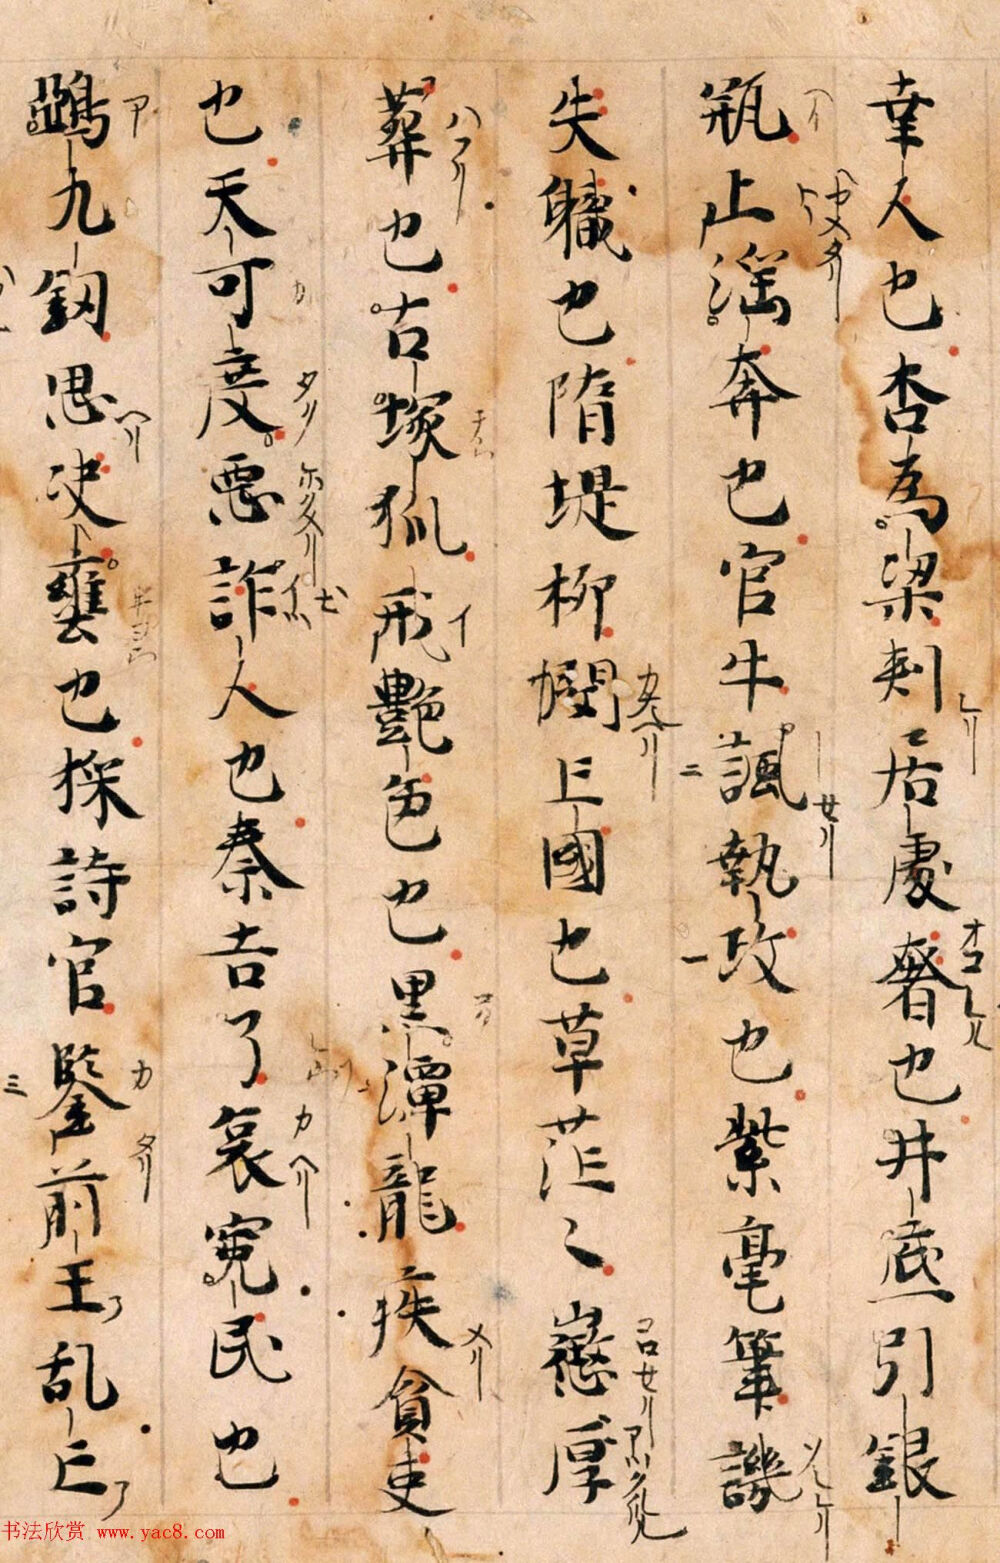 幸人也杏為梁刺居處奢也井底引銀
瓶止滛奔也官牛諷執攻也紫毫筆譏
失職也隋堤柳憫亡國也草茫〻懲厚
葬也古塚狐戒艶色也黒潭龍疾貪吏
也天可度惡詐人也秦吉了哀寃民也
鵶九釼思决壅也採詩官鑒前王乱亡
书法欣赏 www.yac8.com